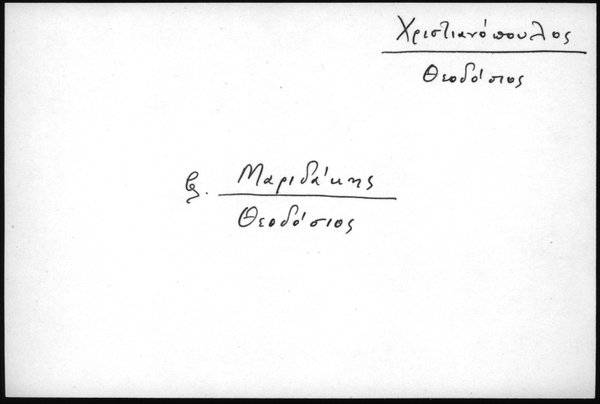 Χριστιανόπουλος
Θεοδόσιος
βλ. Μαριδάκης
Θεοδόσιος